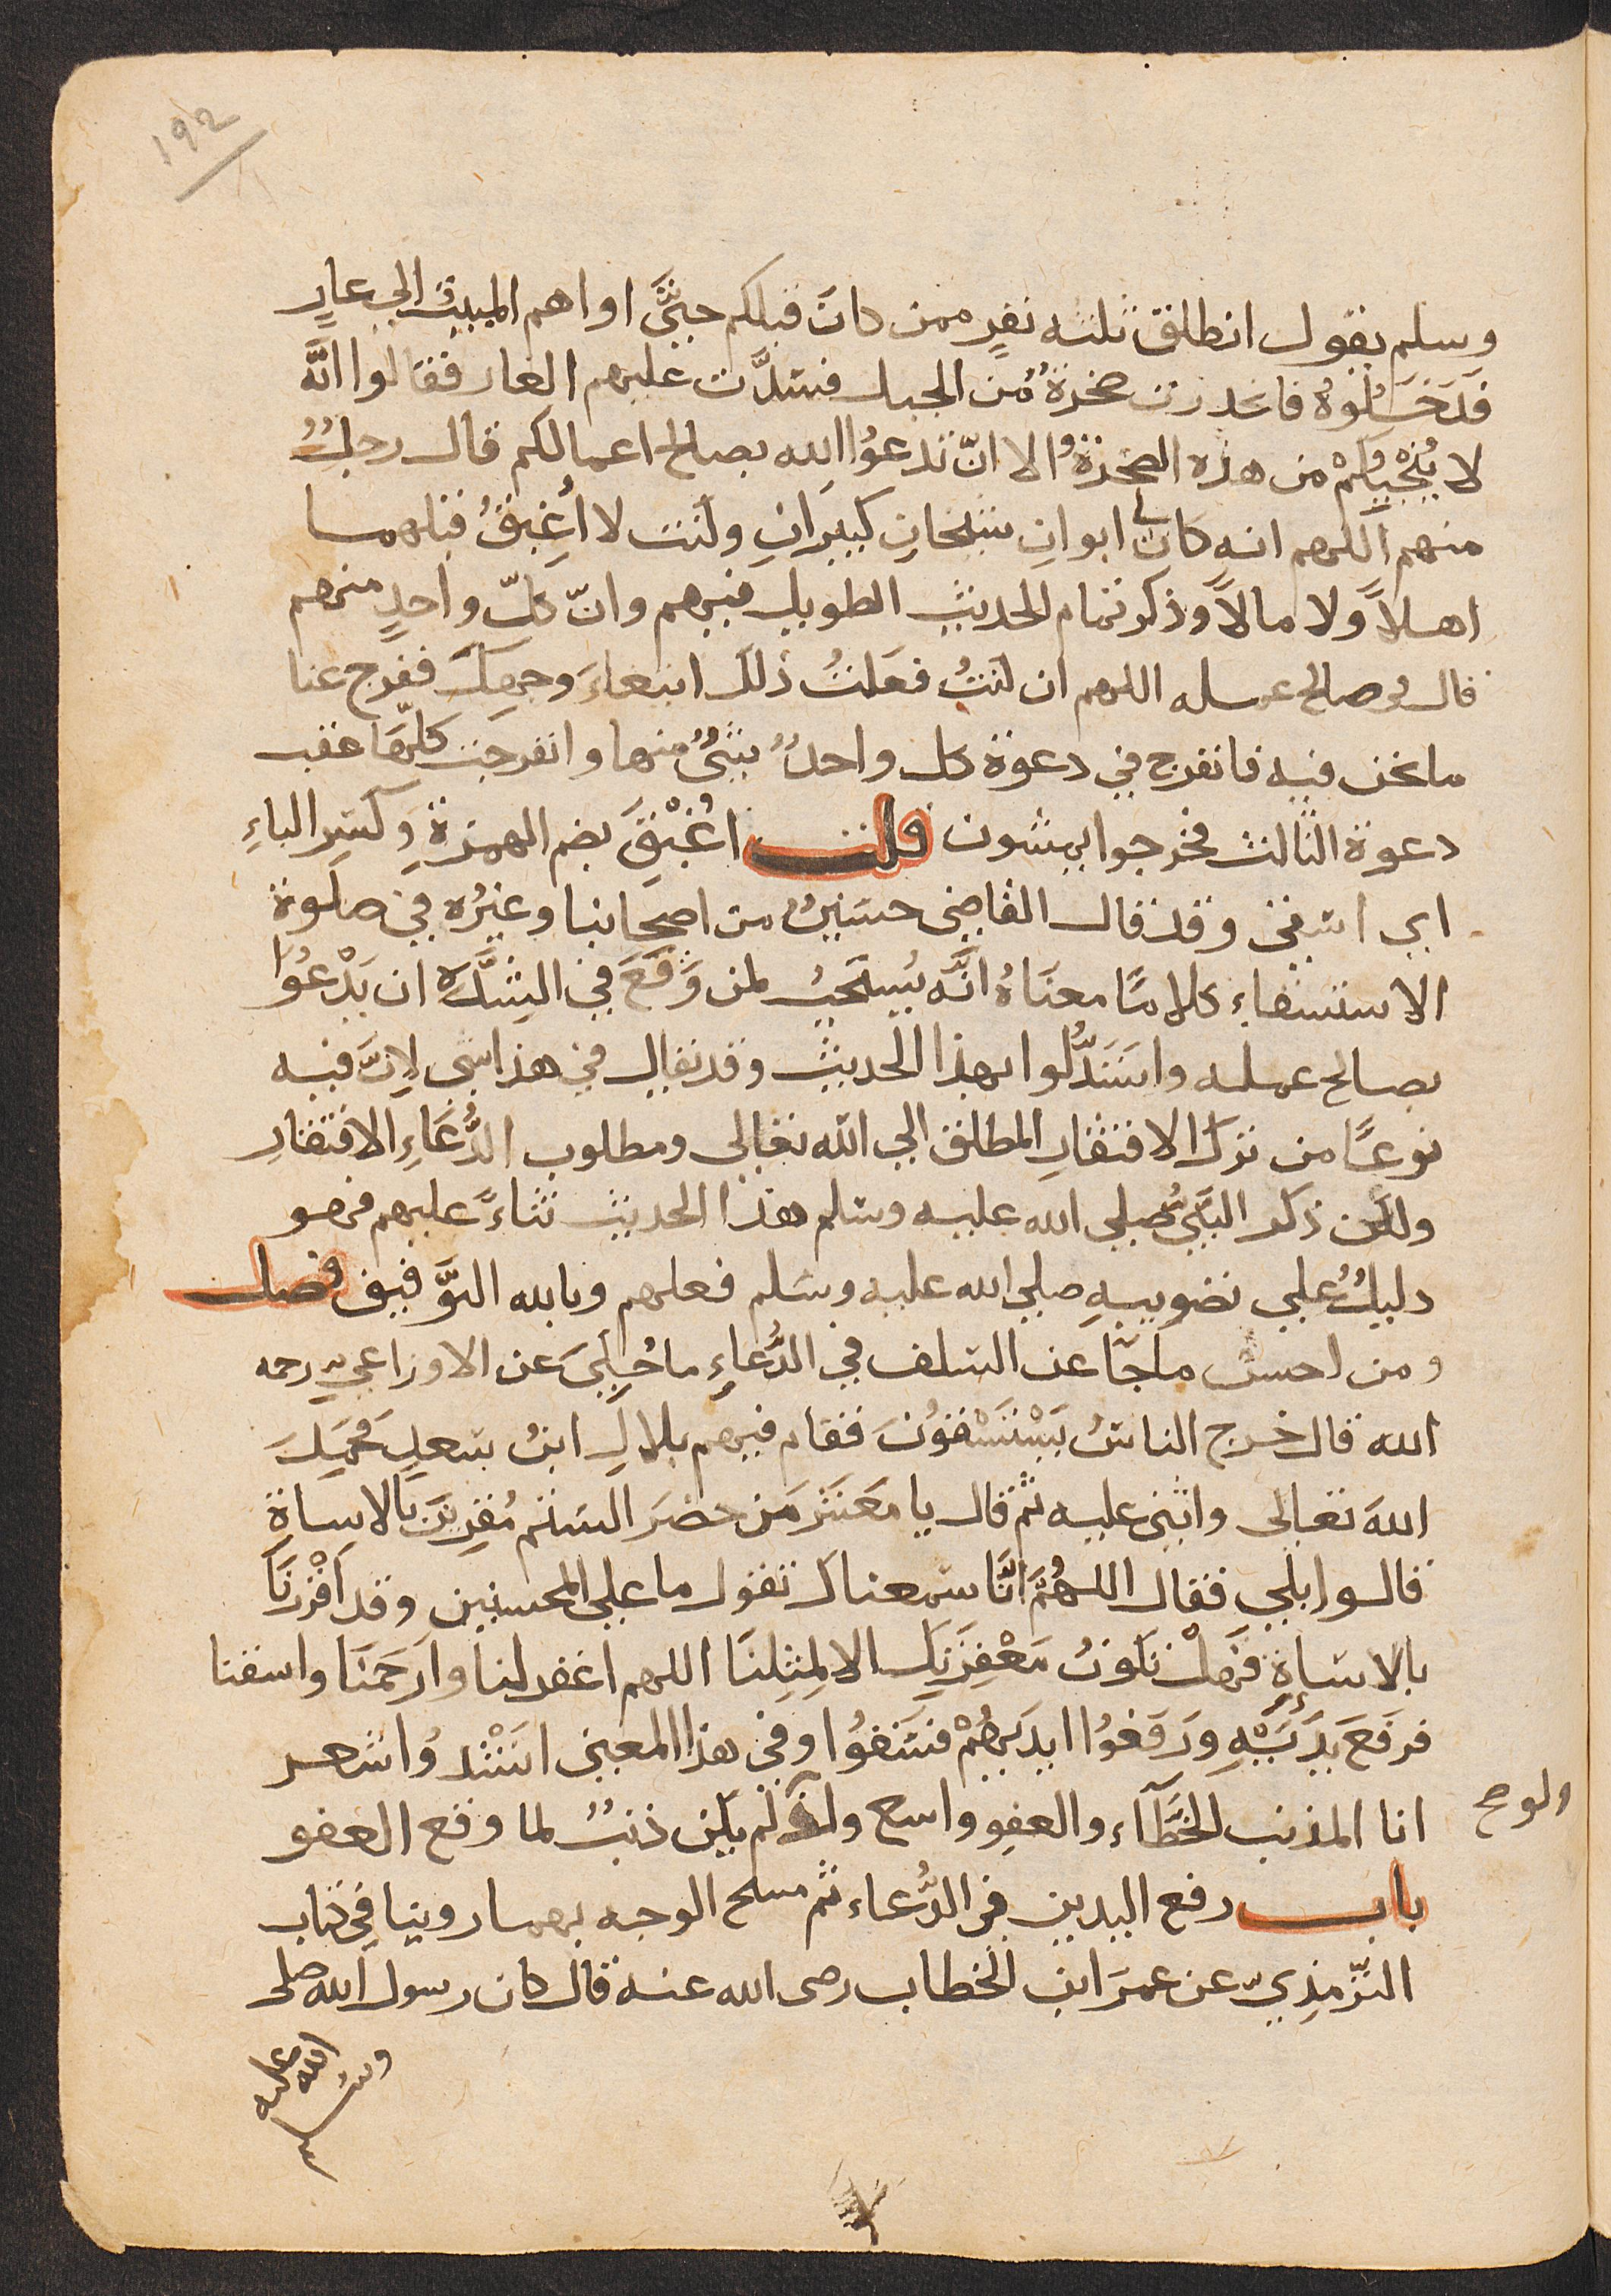 ١٩٢
وسلم يقول انطلق ثلثه نفرٍ ممن كانَ قبلكم حتَّى اواهم المبيت الي غارٍ
فَدَخَلُوهُ فانحدرت صخرةٌ من الجبل فسَدَّت عليهم الغار فقالوا انَّه
لا يُنْجِيكُمْ من هذه الصخرةِ الا انّ تدعوُا الله بصالح اعمالكم قال رجلٌ
منهم اللهم انه كان لي ابوانِ شيخانِ كبيرَانِ وكنت لا اُغبِقُ قبلهما
اهلاً ولا مالاً وذكر تمام الحديث الطويل فيهم وانّ كلّ واحدٍ منهم
قال في صالح عمله اللهم ان كنتُ فعَلتُ ذلك ابتغاءَ وجهِكَ ففرج عنا
ما نحن فيه فانفرج في دعوة كل واحدٌ شئٌ منها وانفرجت كلّها عقب
دعوة الثالث فخرجوا يمشون قلت اُغْبِقَ بضم الهمزةِ وكسرِ الباءِ
اي اسقي وقد قال القاضي حسَين من اصحابنا وغيرُه في صلوة
الاستسقاء كلامًا معنَاهُ انَّه يُستَحبُ لمن وَقَعَ في الشدَّه ان يَدْعُوَا
بصالح عمله واستَدَلُّوا بهذا الحديث وقد يقال في هذا شي لانَّ فيه
نوعًا من ترك الافتقارِ المطلق الي الله تعالى ومطلوب الدُّعَاءِ الافتقار
ولكن ذكر النبَّيُ صلي الله عليه وسلم هذا الحديث ثناءً عليهم فهو
دليلٌ علي تصويبهِ صلي الله عليه وسَلم فعلهم وبالله التوَّفيق فصل
ومن احسن ما جآ عن السَلف في الدُّعاءِ ما حُكِيَ عن الاوزاعي رحمه
الله قال خرج الناسُ يَسْتَسْقُونَ فقام فيهم بلالِ ابنُ سَعدٍ فحَمِدَ
اللهَ تعالى واثنى عليه ثم قال يا مَعشَرَ مَن حضَر السَتم مُقرِينَ بَالاساةِ
قالوا بلي فقال اللهُمَّ انَّا سَمعناك تقول ما علي المحسنين وقد اَقْرَرنَا
بالاسَاةِ فهلْ تكونُ مَغْفِرَتكَ الا لمِثِلنَا اللهم اغفر لنا وارَحَمنَا واسقنا
فرفَعَ يدَيَّهِ وَرَفعُوا ايديَهُمْ فسَقوُا وفي هذا المعني انشَدُوا شعر
انا المذنب الخطَّآء والعفو واسع ولو لم يكن ذنبٌ لما وقع العفو
باب رفع اليدين في الدُّعاء ثم مسح الوجه بهما روينا في كتاب
الترّمذِيّ عن عمرَ ابن الخطاب رضى الله عنه قال كان رسول الله صلى
الله عليه
وسلم